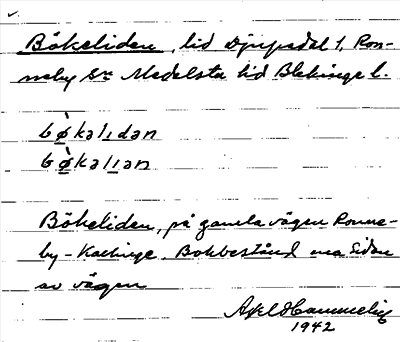 Bökeliden, lid Djupadal 1, Ron-
neby sn Medelsta hd Blekinge l.
bø̀kalıdan
bø̀kalıan
Bökeliden, på gamla vägen Ronne-
by - Kallinge. Bokbestånd ena sidan
av vägen
Axel
1942